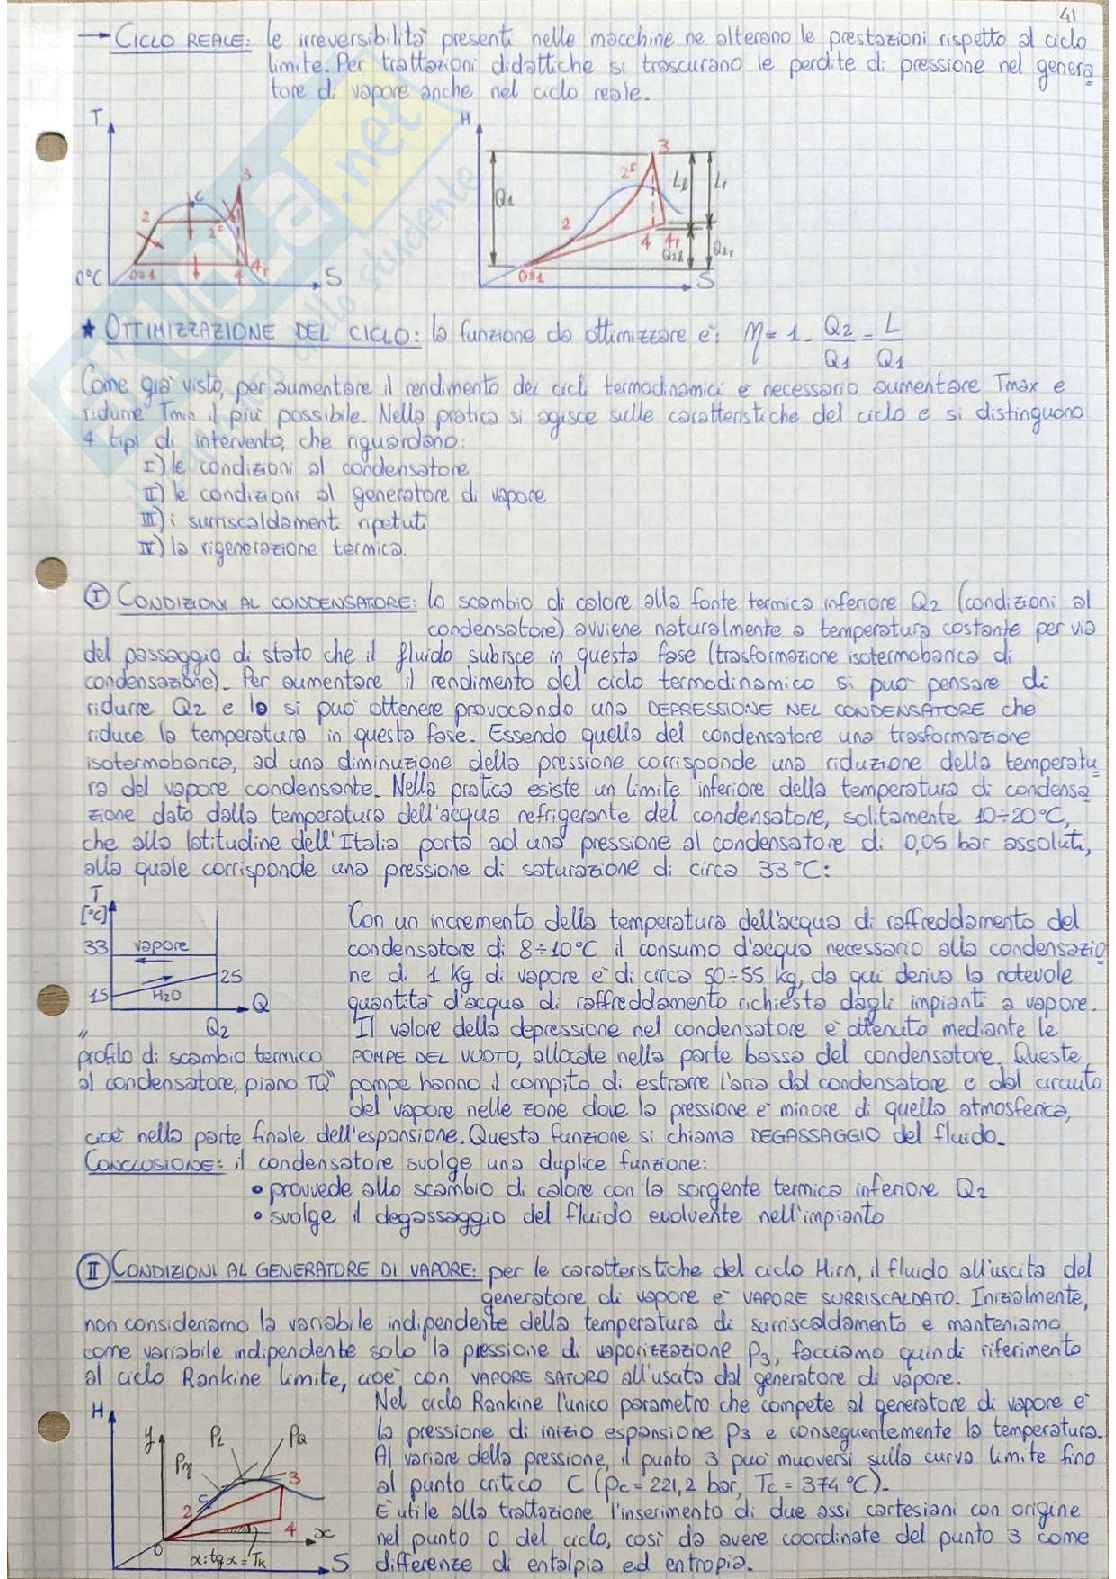 41
→ CICLO REALE: le irreversibilità presenti nelle macchine ne alterano le prestazioni rispetto al ciclo
limite. Per trattazioni didattiche si trascurano le perdite di pressione nel genera
tore di vapore anche nel ciclo reale.
T
H
3
C
2
2'
0≡1
4
4r
0°C
S
3
2'
Q1
2
Ll
Lr
4
4r
Q2l
Q2r
0≡1
S
★ OTTIMIZZAZIONE DEL CICLO: la funzione da ottimizzare è: η = 1 - Q2/Q1 = L/Q1
Come già visto, per aumentare il rendimento dei cicli termodinamici è necessario aumentare Tmax e
ridurre Tmin il più possibile. Nella pratica si agisce sulle caratteristiche del ciclo e si distinguono
4 tipi di intervento, che riguardano:
I) le condizioni al condensatore
II) le condizioni al generatore di vapore
III) i surriscaldamenti ripetuti
IV) la rigenerazione termica.
I CONDIZIONI AL CONDENSATORE: lo scambio di calore alla fonte termica inferiore Q2 (condizioni al
condensatore) avviene naturalmente a temperatura costante per via
del passaggio di stato che il fluido subisce in questa fase (trasformazione isotermobarica di
condensazione). Per aumentare il rendimento del ciclo termodinamico si può pensare di
ridurre Q2 e lo si può ottenere provocando una DEPRESSIONE NEL CONDENSATORE che
riduce la temperatura in questa fase. Essendo quella del condensatore una trasformazione
isotermobarica, ad una diminuzione della pressione corrisponde una riduzione della temperatu
ra del vapore condensante. Nella pratica esiste un limite inferiore della temperatura di condensa
zione dato dalla temperatura dell'acqua refrigerante del condensatore, solitamente 10÷20°C,
che alla latitudine dell'Italia porta ad una pressione al condensatore di 0,05 bar assoluti,
alla quale corrisponde una pressione di saturazione di circa 33°C:
T
[°C]
33
vapore
25
15
H2O
Q
Q2
"profilo di scambio termico
al condensatore, piano TQ"
Con un incremento della temperatura dell'acqua di raffreddamento del
condensatore di 8÷10°C il consumo d'acqua necessario alla condensazio
ne di 1 kg di vapore è di circa 50÷55 kg, da qui deriva la notevole
quantità d'acqua di raffreddamento richiesta dagli impianti a vapore.
Il valore della depressione nel condensatore è ottenuto mediante le
POMPE DEL VUOTO, allocate nella parte bassa del condensatore. Queste
pompe hanno il compito di estrarre l'aria dal condensatore e dal circuito
del vapore nelle zone dove la pressione è minore di quella atmosferica,
cioè nella parte finale dell'espansione. Questa funzione si chiama DEGASSAGGIO del fluido.
CONCLUSIONE: il condensatore svolge una duplice funzione:
• provvede allo scambio di calore con la sorgente termica inferiore Q2
• svolge il degassaggio del fluido evolvente nell'impianto
II CONDIZIONI AL GENERATORE DI VAPORE: per le caratteristiche del ciclo Hirn, il fluido all'uscita del
generatore di vapore è VAPORE SURRISCALDATO. Inizialmente,
non consideriamo la variabile indipendente della temperatura di surriscaldamento e manteniamo
come variabile indipendente solo la pressione di vaporizzazione P3, facciamo quindi riferimento
al ciclo Rankine limite, cioè con VAPORE SATURO all'uscita dal generatore di vapore.
H
y
PL
PQ
Pη
C
3
2
4
0
x
x:tgα=Tk
S
Nel ciclo Rankine l'unico parametro che compete al generatore di vapore è
la pressione di inizio espansione P3 e conseguentemente la temperatura.
Al variare della pressione, il punto 3 può muoversi sulla curva limite fino
al punto critico C (Pc = 221,2 bar, Tc = 374°C).
È utile alla trattazione l'inserimento di due assi cartesiani con origine
nel punto 0 del ciclo, così da avere coordinate del punto 3 come
differenze di entalpia ed entropia.